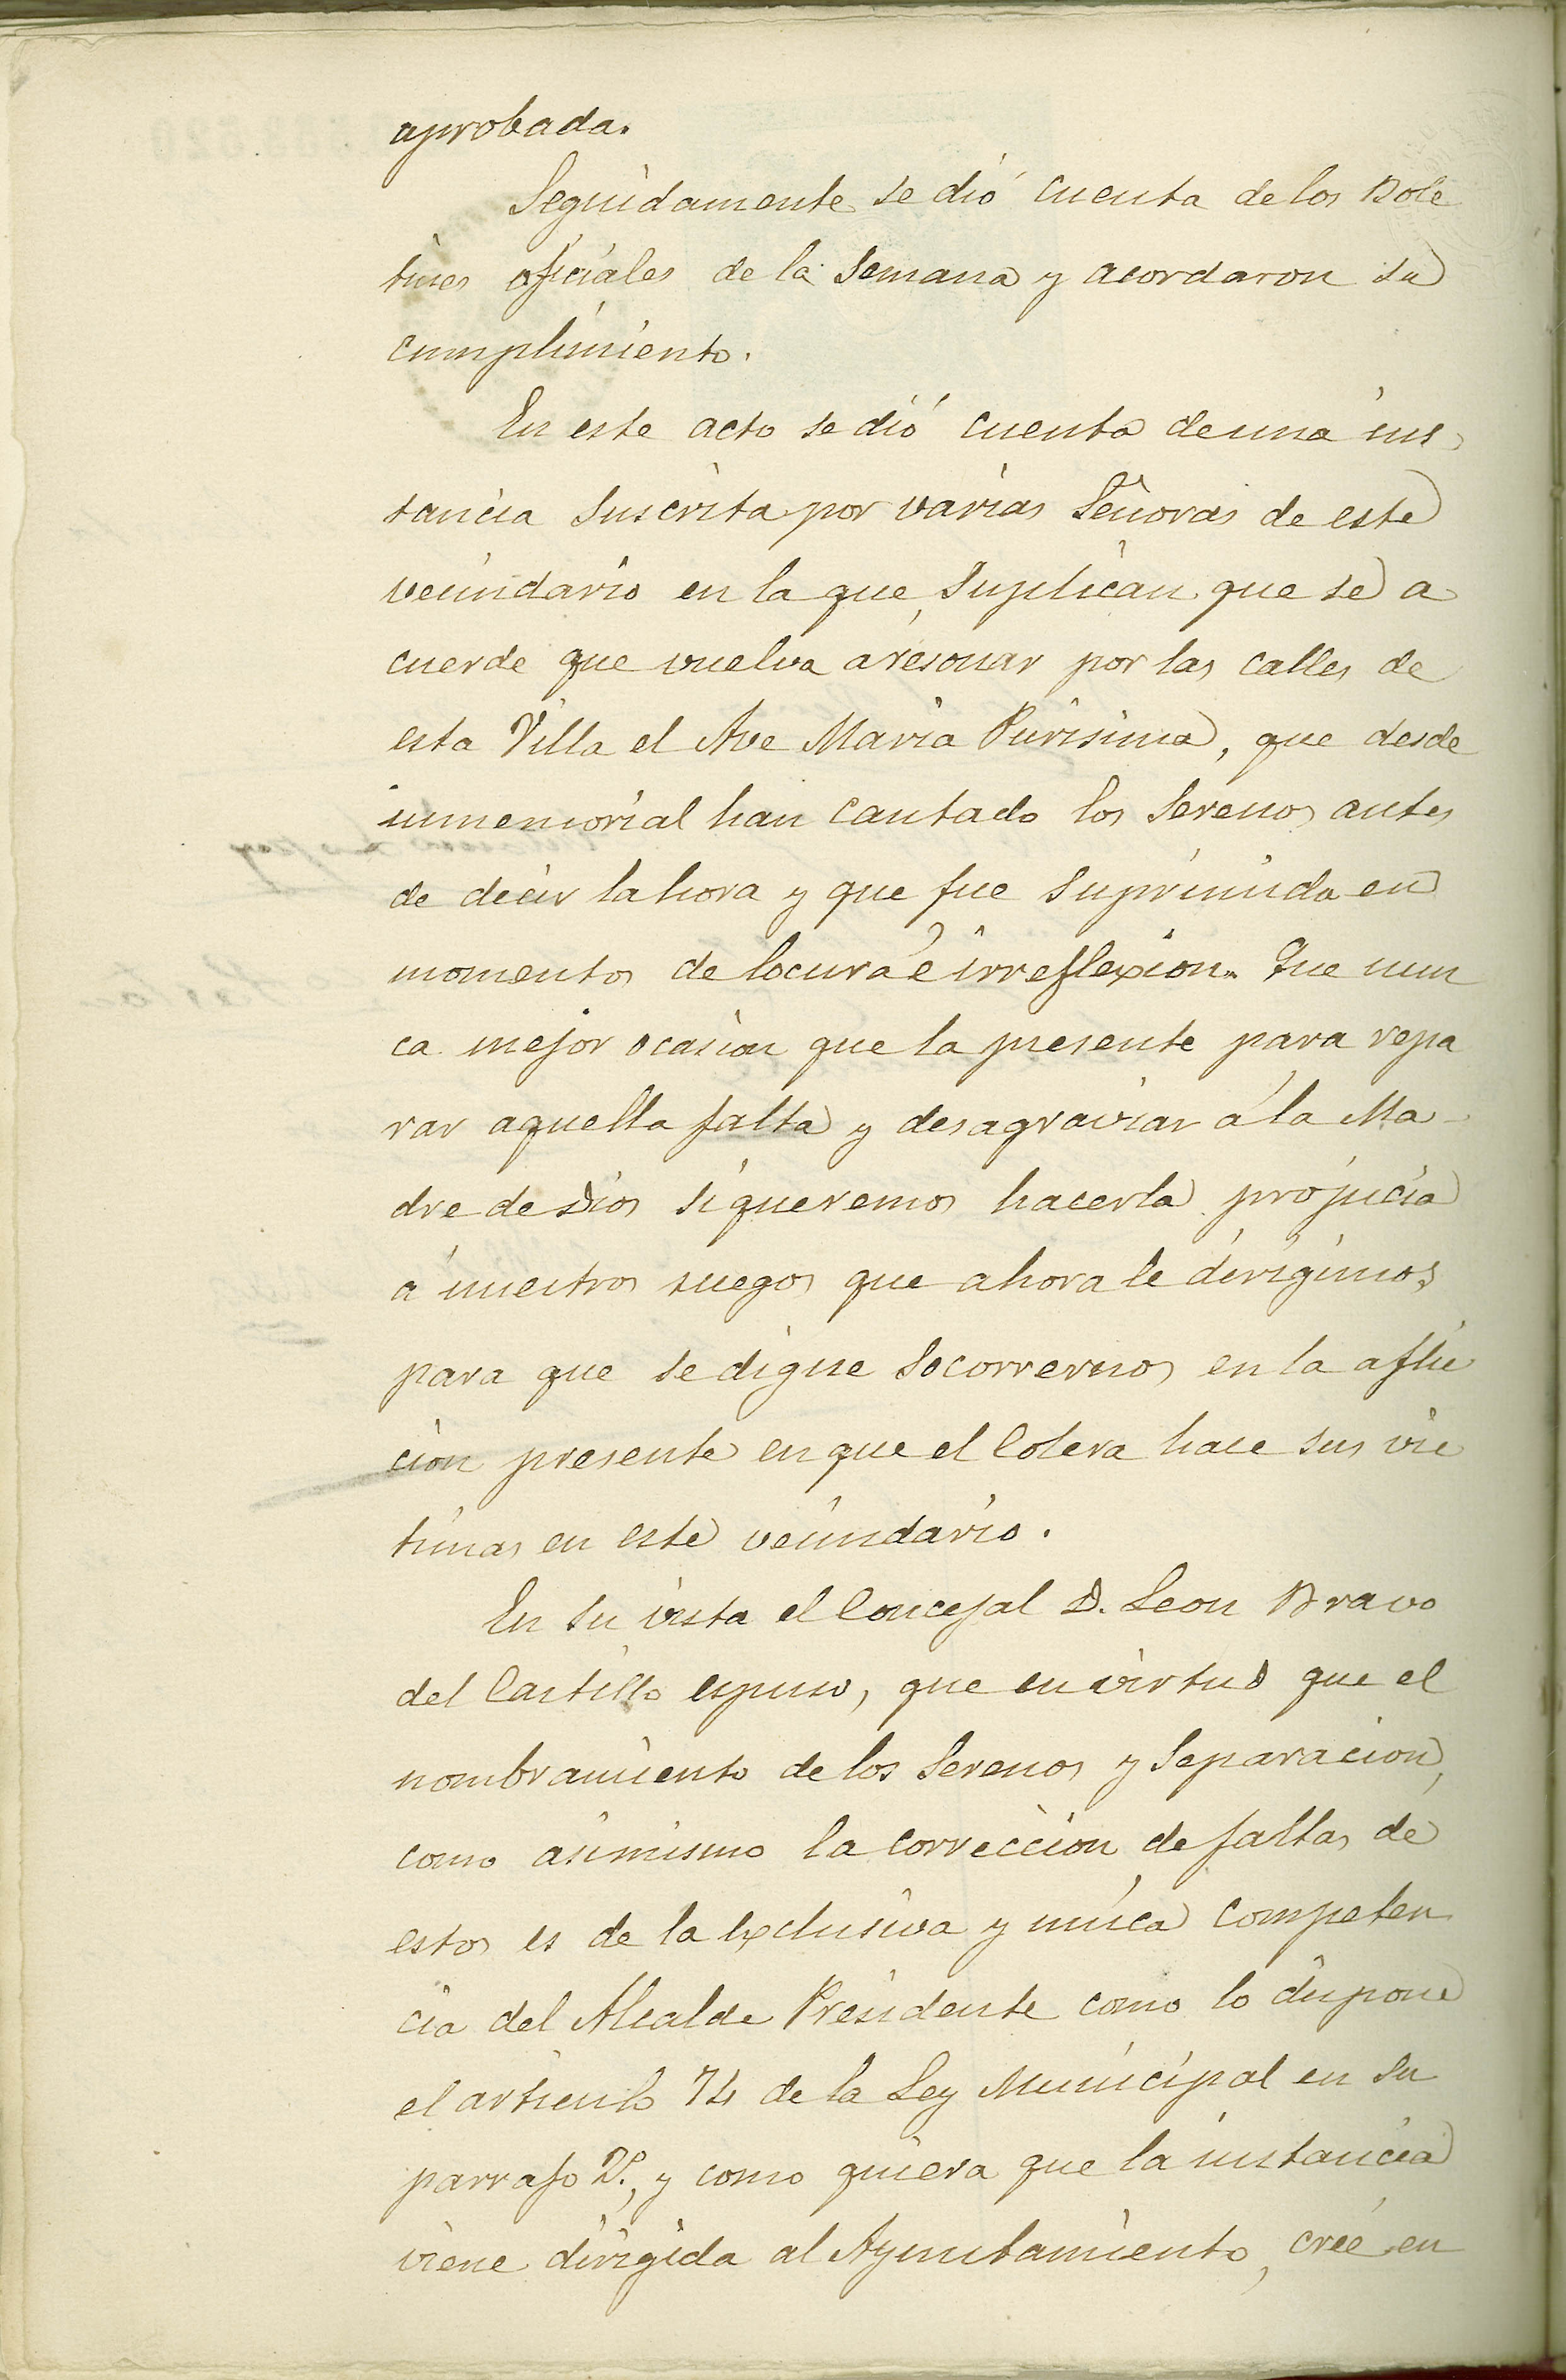 aprobada.
Seguidamente se dió cuenta de los Bole
tines oficiales de la Semana y acordaron su
cumplimiento.
En este acto se dió cuenta de una ins
tancia Suscrita por varias Señoras de este
vecindario en la que Suplican que se a
cuerde que vuelva á resonar por las calles de
esta Villa el Ave Maria Purisima, que desde
inmemorial han cantado los Serenos antes
de decir la hora y que fue Suprimida en
momentos de locura é irreflexion. Que nun
ca mejor ocasion que la presente para repa
rar aquella falta y desagraviar á la Ma-
dre de Dios si queremos hacerla propicia
á nuestros ruegos que ahora le dirigimos
para que se digne Socorrernos en la aflic
cion presente en que el Colera hace sus vic
timas en este vecindario.
En su vista el Concejal D. Leon Bravo
del Castillo espuso, que en virtud que el
nombramiento de los Serenos y Separacion,
como asimismo la Correccion de faltas de
estos es de la exclusiva y unica Competen
cia del Alcalde Presidente como lo dispone
el articulo 74 de la Ley Municipal en su
parrafo 2º, y como quiera que la instancia
viene dirigida al Ayuntamiento, creé en